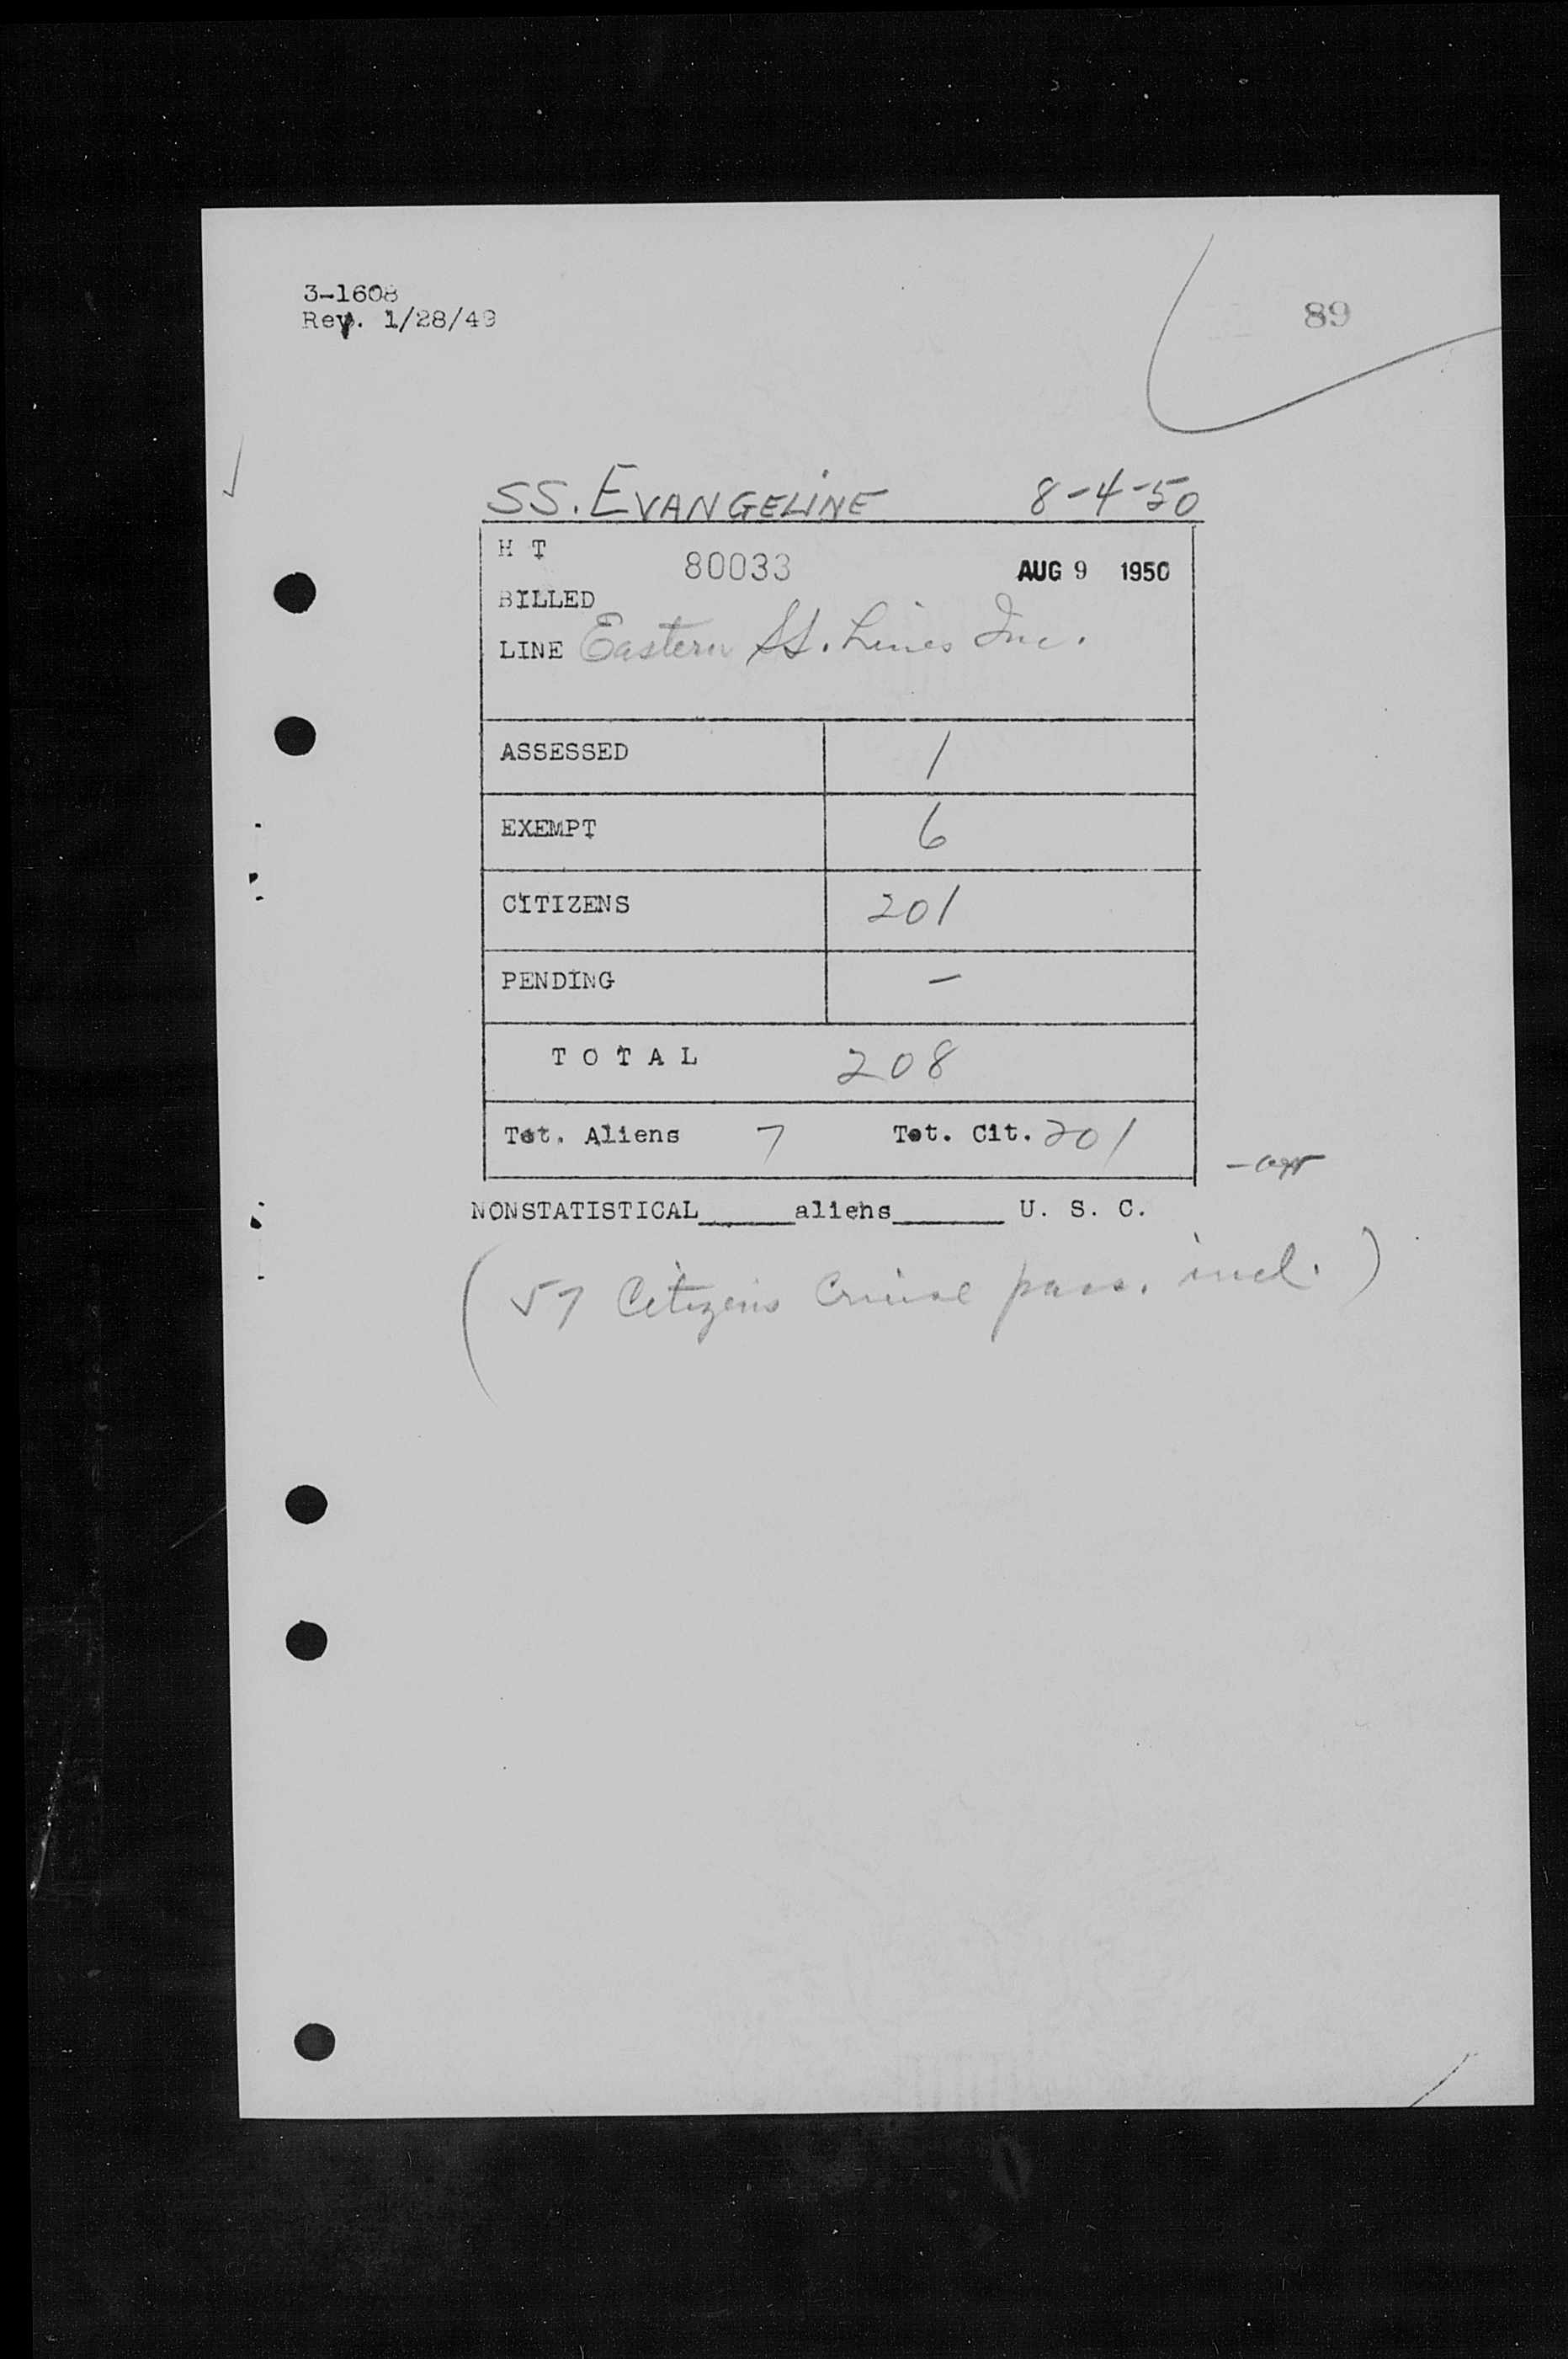 3-1608
Rev. 1/28/49
89
SS. EVANGELINE 8-4-50
H T 80033 AUG 9 1950
BILLED
LINE Eastern SS. Lines Inc.
ASSESSED 1
EXEMPT 6
CITIZENS 201
PENDING –
T O T A L 208
Tot. Aliens 7 Tot. Cit. 201
NONSTATISTICAL______aliens_______ U. S. C.
( 57 Citizens Cruise pass. incl. )